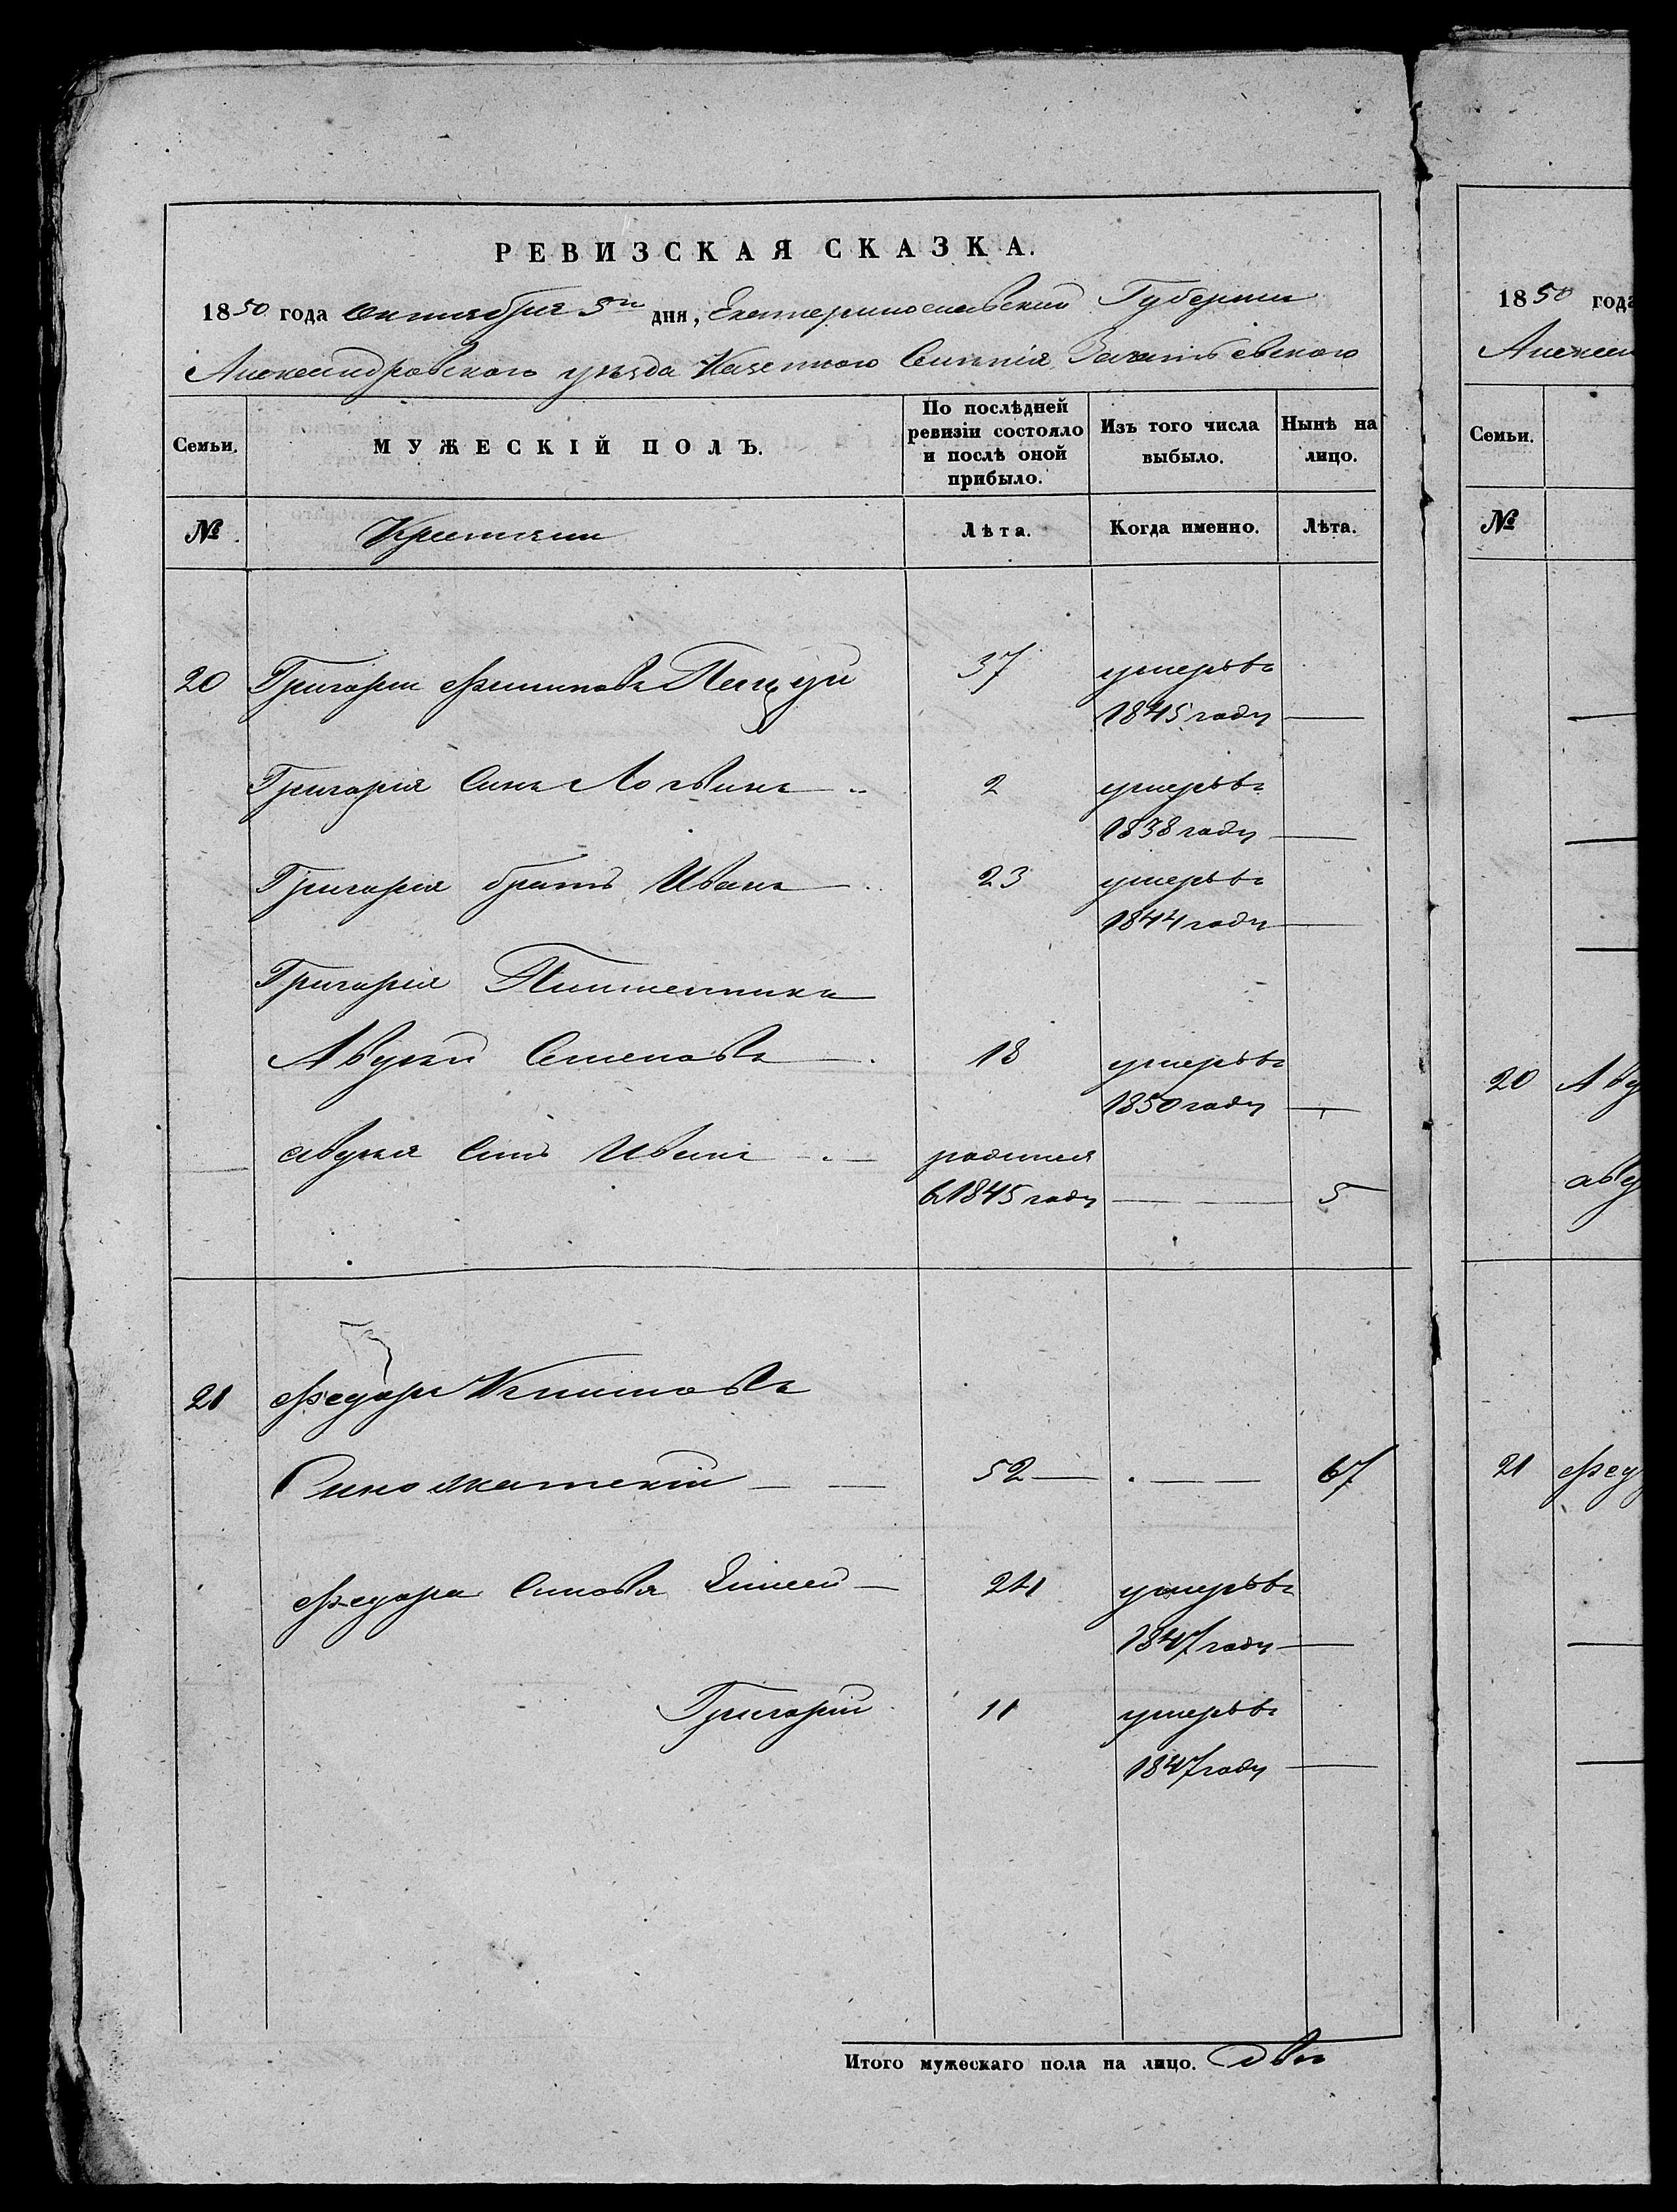 РЕВИЗСКАЯ СКАЗКА.
1850 года Октября 5го дня, Екатеринославской Губернии
Александровского уѣзда Казенного Селенія
Семьи.
МУЖЕСКІЙ ПОЛЪ.
По послѣдней ревизіи состояло и послѣ оной прибыло.
Изъ того числа выбыло.
Нынѣ на лицо.
№
Крестяни
Лѣта.
Когда именно.
Лѣта.
20 Григории Филиповъ 37 умеръ въ
1845 году —
Григорія Синъ Логвинъ 2 умеръ въ
1838 году —
Григорія братъ Иванъ 23 умеръ въ
1844 году —
Григорія
Семеновъ 18 умеръ въ
1850 году —
Синъ Иванъ родился
в 1845 году — 5
21 Федоръ
52 — 67
Федора Синовя Елисей — 21 умеръ въ
1847 году —
Григорій 11 умеръ въ
1847 году —
Итого мужескаго пола на лицо. два
1850 года
Алексан
Семьи.
№
20 Аву
аву
21 Феду